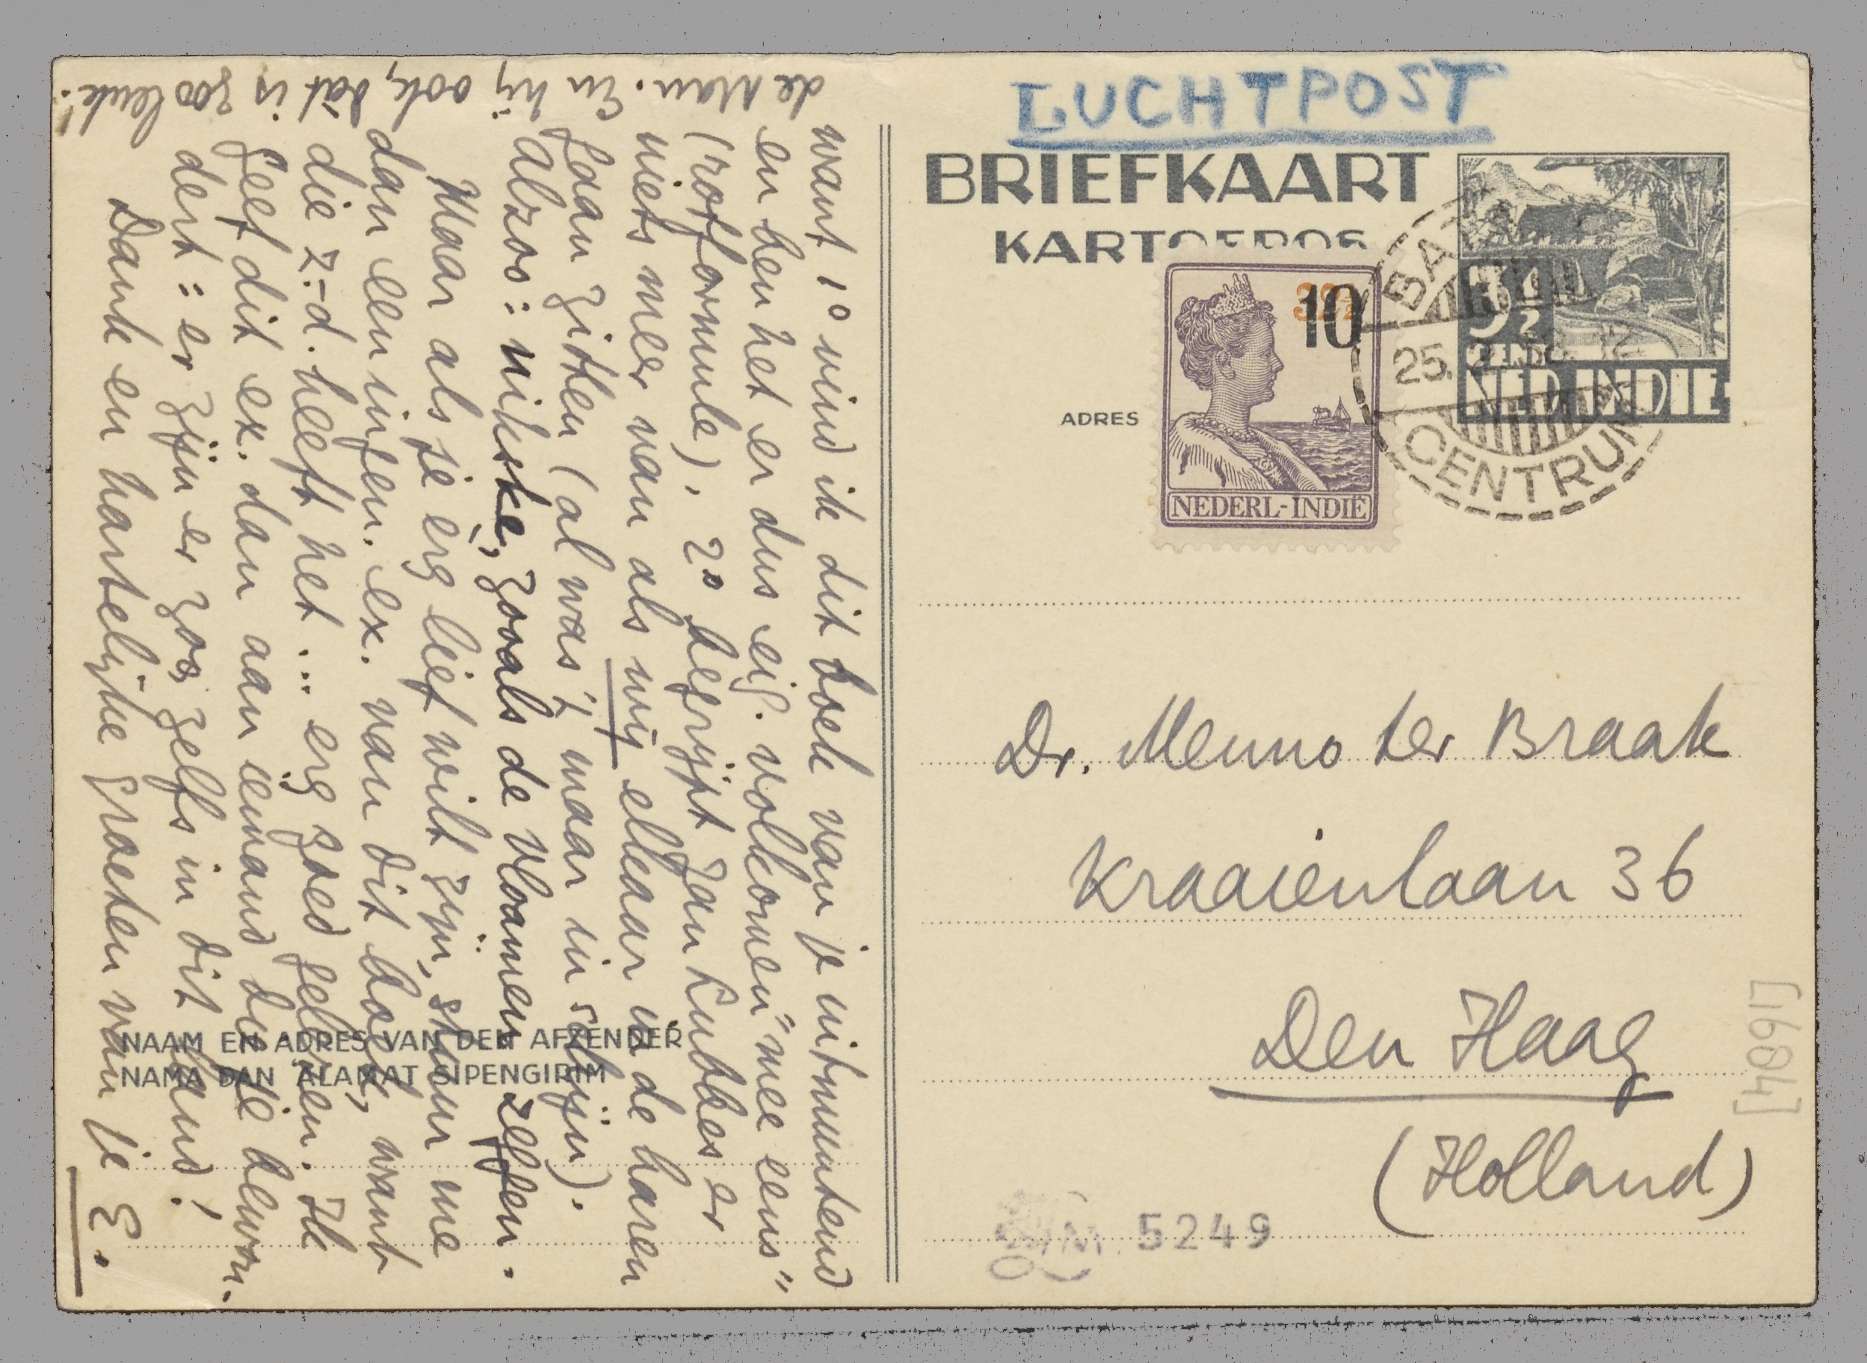 want 1° vind ik dit boek van je uitmuntend
en ben het er dus eig. volkomen "mee eens"
(rotformule). 2° begrijpt Jan Lubbes er
niets meer van als wij elkaar in de haren
gaan zitten (al was 't maar in schijn).
Alzoo: nikske, zooals de Vloamen zeggen.
Maar als je erg lief wilt zijn, stuur me
dan een ingen. ex. van dit boek, want
die z.-d. heeft het ... erg goed gelezen. Ik
geef dit ex. dan aan iemand die je bewon-
dert: er zijn er zoo zelfs in dit land!
Dank en hartelijke groeten van je E.
de Man. En hij ook, dàt is zoo leuk!
LUCHTPOST
BRIEFKAART
KARTOEPOS
10
3½
CENT
NED. INDIE
BAT
25.
CENTRUM
ADRES
NEDERL-INDIË
Dr. Menno ter Braak
Kraaienlaan 36
Den Haag
(Holland)
[1604]
NAAM EN ADRES VAN DEN AFZENDER
NAMA DAN ALAMAT SIPENGIRIM
LM 5249